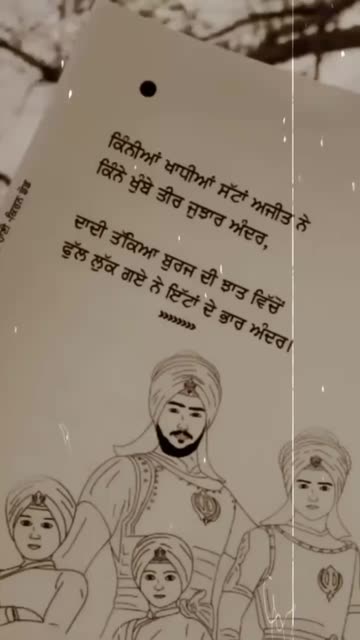 ਕਿੰਨੀਆਂ ਖਾਧੀਆਂ ਸੱਟਾਂ ਅਜੀਤ ਨੇ
ਕਿੰਨੇ ਖੁੱਬੇ ਤੀਰ ਜੁਝਾਰ ਅੰਦਰ,
ਦਾਦੀ ਤੱਕਿਆ ਬੁਰਜ ਦੀ ਝਾਤ ਵਿੱਚੋਂ
ਫੁੱਲ ਲੁੱਕ ਗਏ ਨੇ ਇੱਟਾਂ ਦੇ ਭਾਰ ਅੰਦਰ।
»»»»